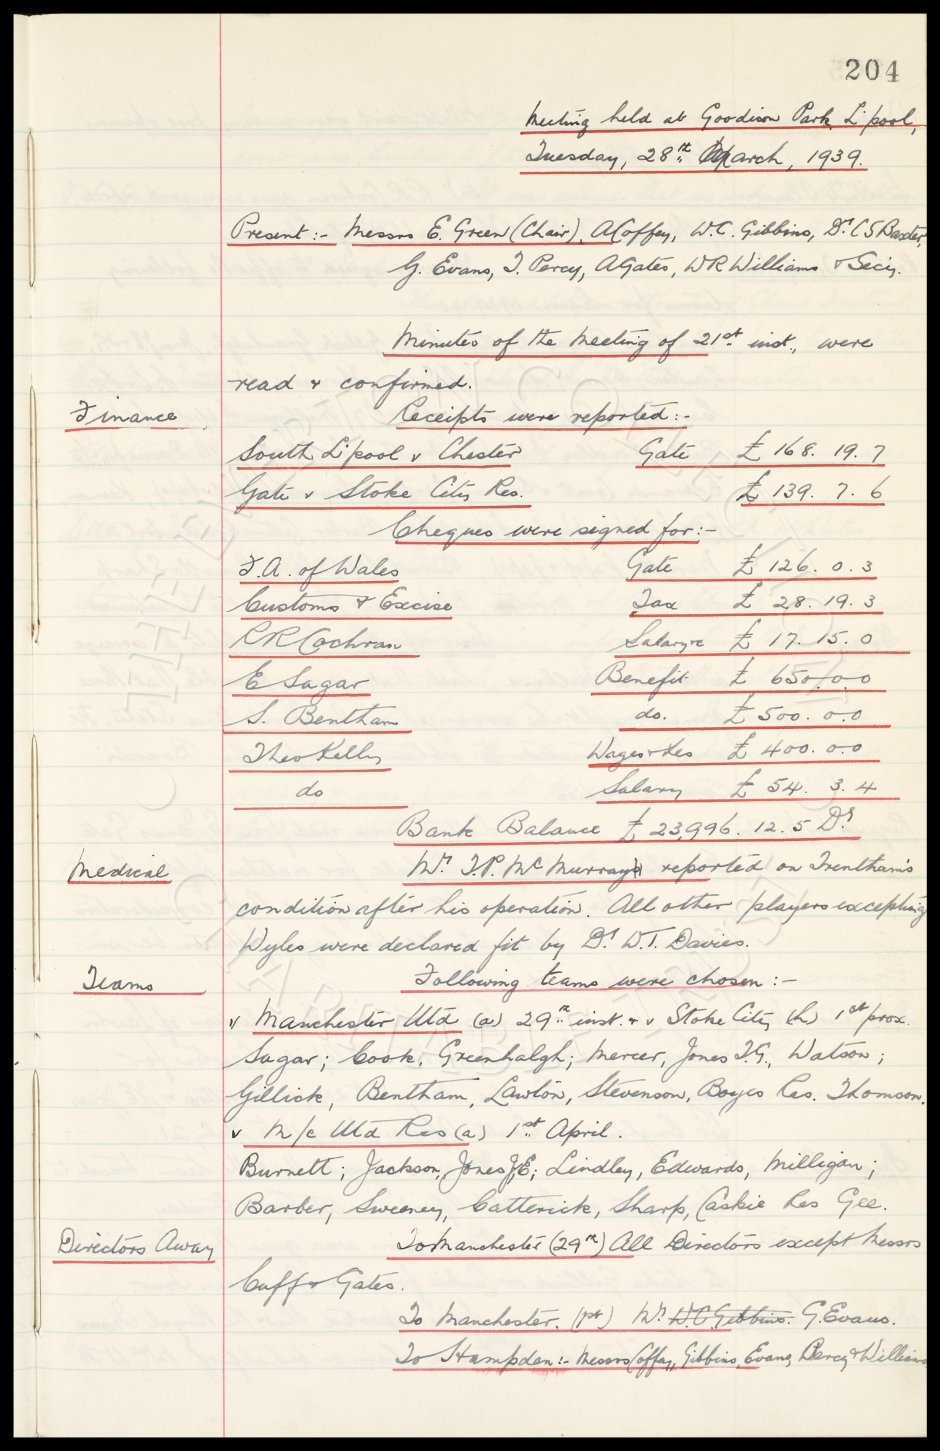 204
Meeting held at Goodison Park, L'pool,
Tuesday, 28th March, 1939.
Present:- Messrs E. Green (Chair), A Coffey, W.C. Gibbins, Dr C S Baxter,
G. Evans, T. Percy, A Gates, W R Williams & Secy.
Minutes of the Meeting of 21st inst., were
read & confirmed.
Finance Receipts were reported:-
South L'pool v Chester Gate £ 168. 19. 7
Gate v Stoke City Res. £ 139. 7. 6
Cheques were signed for:-
F.A. of Wales Gate £ 126. 0. 3
Customs & Excise Tax £ 28. 19. 3
R R Cochran Salary £ 17. 15. 0
E Sagar Benefit £ 650. 0. 0
S. Bentham do. £ 500. 0. 0
Theo Kelly Wages £ 400. 0. 0
do Salary £ 54. 3. 4
Bank Balance £ 23,996. 12. 5 Dr
Medical Mr T.P. McMurray reported on Trentham's
condition after his operation. All other players excepting
Wyles were declared fit by Dr W.T. Davies.
Teams Following teams were chosen:-
v Manchester Utd (a) 29th inst. & v Stoke City (h) 1st prox.
Sagar; Cook, Greenhalgh; Mercer, Jones T.G., Watson;
Gillick, Bentham, Lawton, Stevenson, Boyes Res. Thomson.
v M/c Utd Res (a) 1st April.
Burnett; Jackson, Jones J.E; Lindley, Edwards, Milligan;
Barber, Sweeney, Catterick, Sharp, Caskie Res Gee.
Directors Away To Manchester (29th) All Directors except Messrs
Cuff & Gates.
To Manchester. (1st) Mr W.C. Gibbins. G. Evans.
To Hampden:- Messrs Coffey, Gibbins, Evans, Percy & Williams